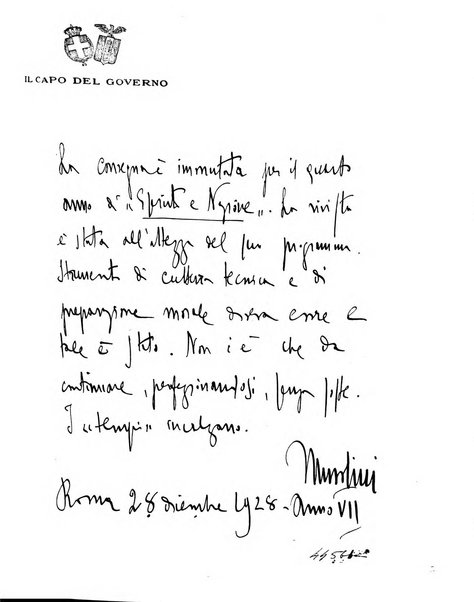 IL CAPO DEL GOVERNO
La consegna è immutata per il quarto
anno di "Esercito e Nazione". La rivista
è stata all'altezza del suo programma.
Strumento di cultura tecnica e di
preparazione morale doveva essere e
tale è stato. Non c'è che da
continuare, perfezionandosi, senza soste.
I "tempi" incalzano.
Mussolini
Roma 28 dicembre 1928 - Anno VII